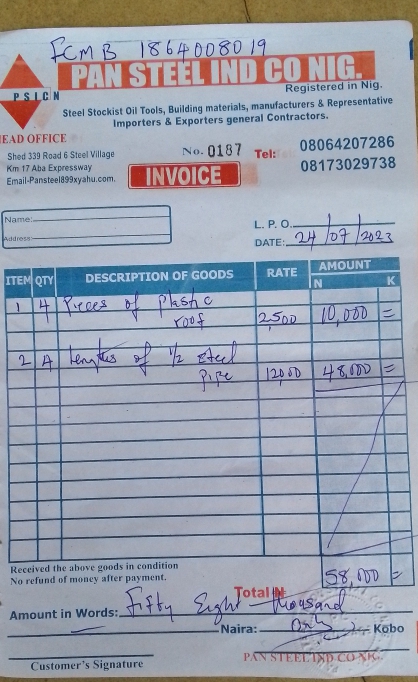 FCMB 1864008019
PAN STEEL IND CO NIG.
PSICN
Registered in Nig.
Steel Stockist Oil Tools, Building materials, manufacturers & Representative
Importers & Exporters general Contractors.
EAD OFFICE
Shed 339 Road 6 Steel Village
Km 17 Aba Expressway
Email-Pansteel899xyahu.com.
No. 0187
Tel: 08064207286
08173029738
INVOICE
Name:
Address:
L. P. O.
DATE: 24/07/2023
ITEM QTY DESCRIPTION OF GOODS RATE AMOUNT
N K
1 4 Pieces of Plastic
roof 2,500 10,000 =
2 4 Lengths of 1/2 steel
pipe 12,000 48,000 =
Received the above goods in condition
No refund of money after payment.
Total N 58,000 =
Amount in Words: Fifty Eight thousand
Naira: only Kobo
Customer's Signature
PAN STEEL IND CO NIG.